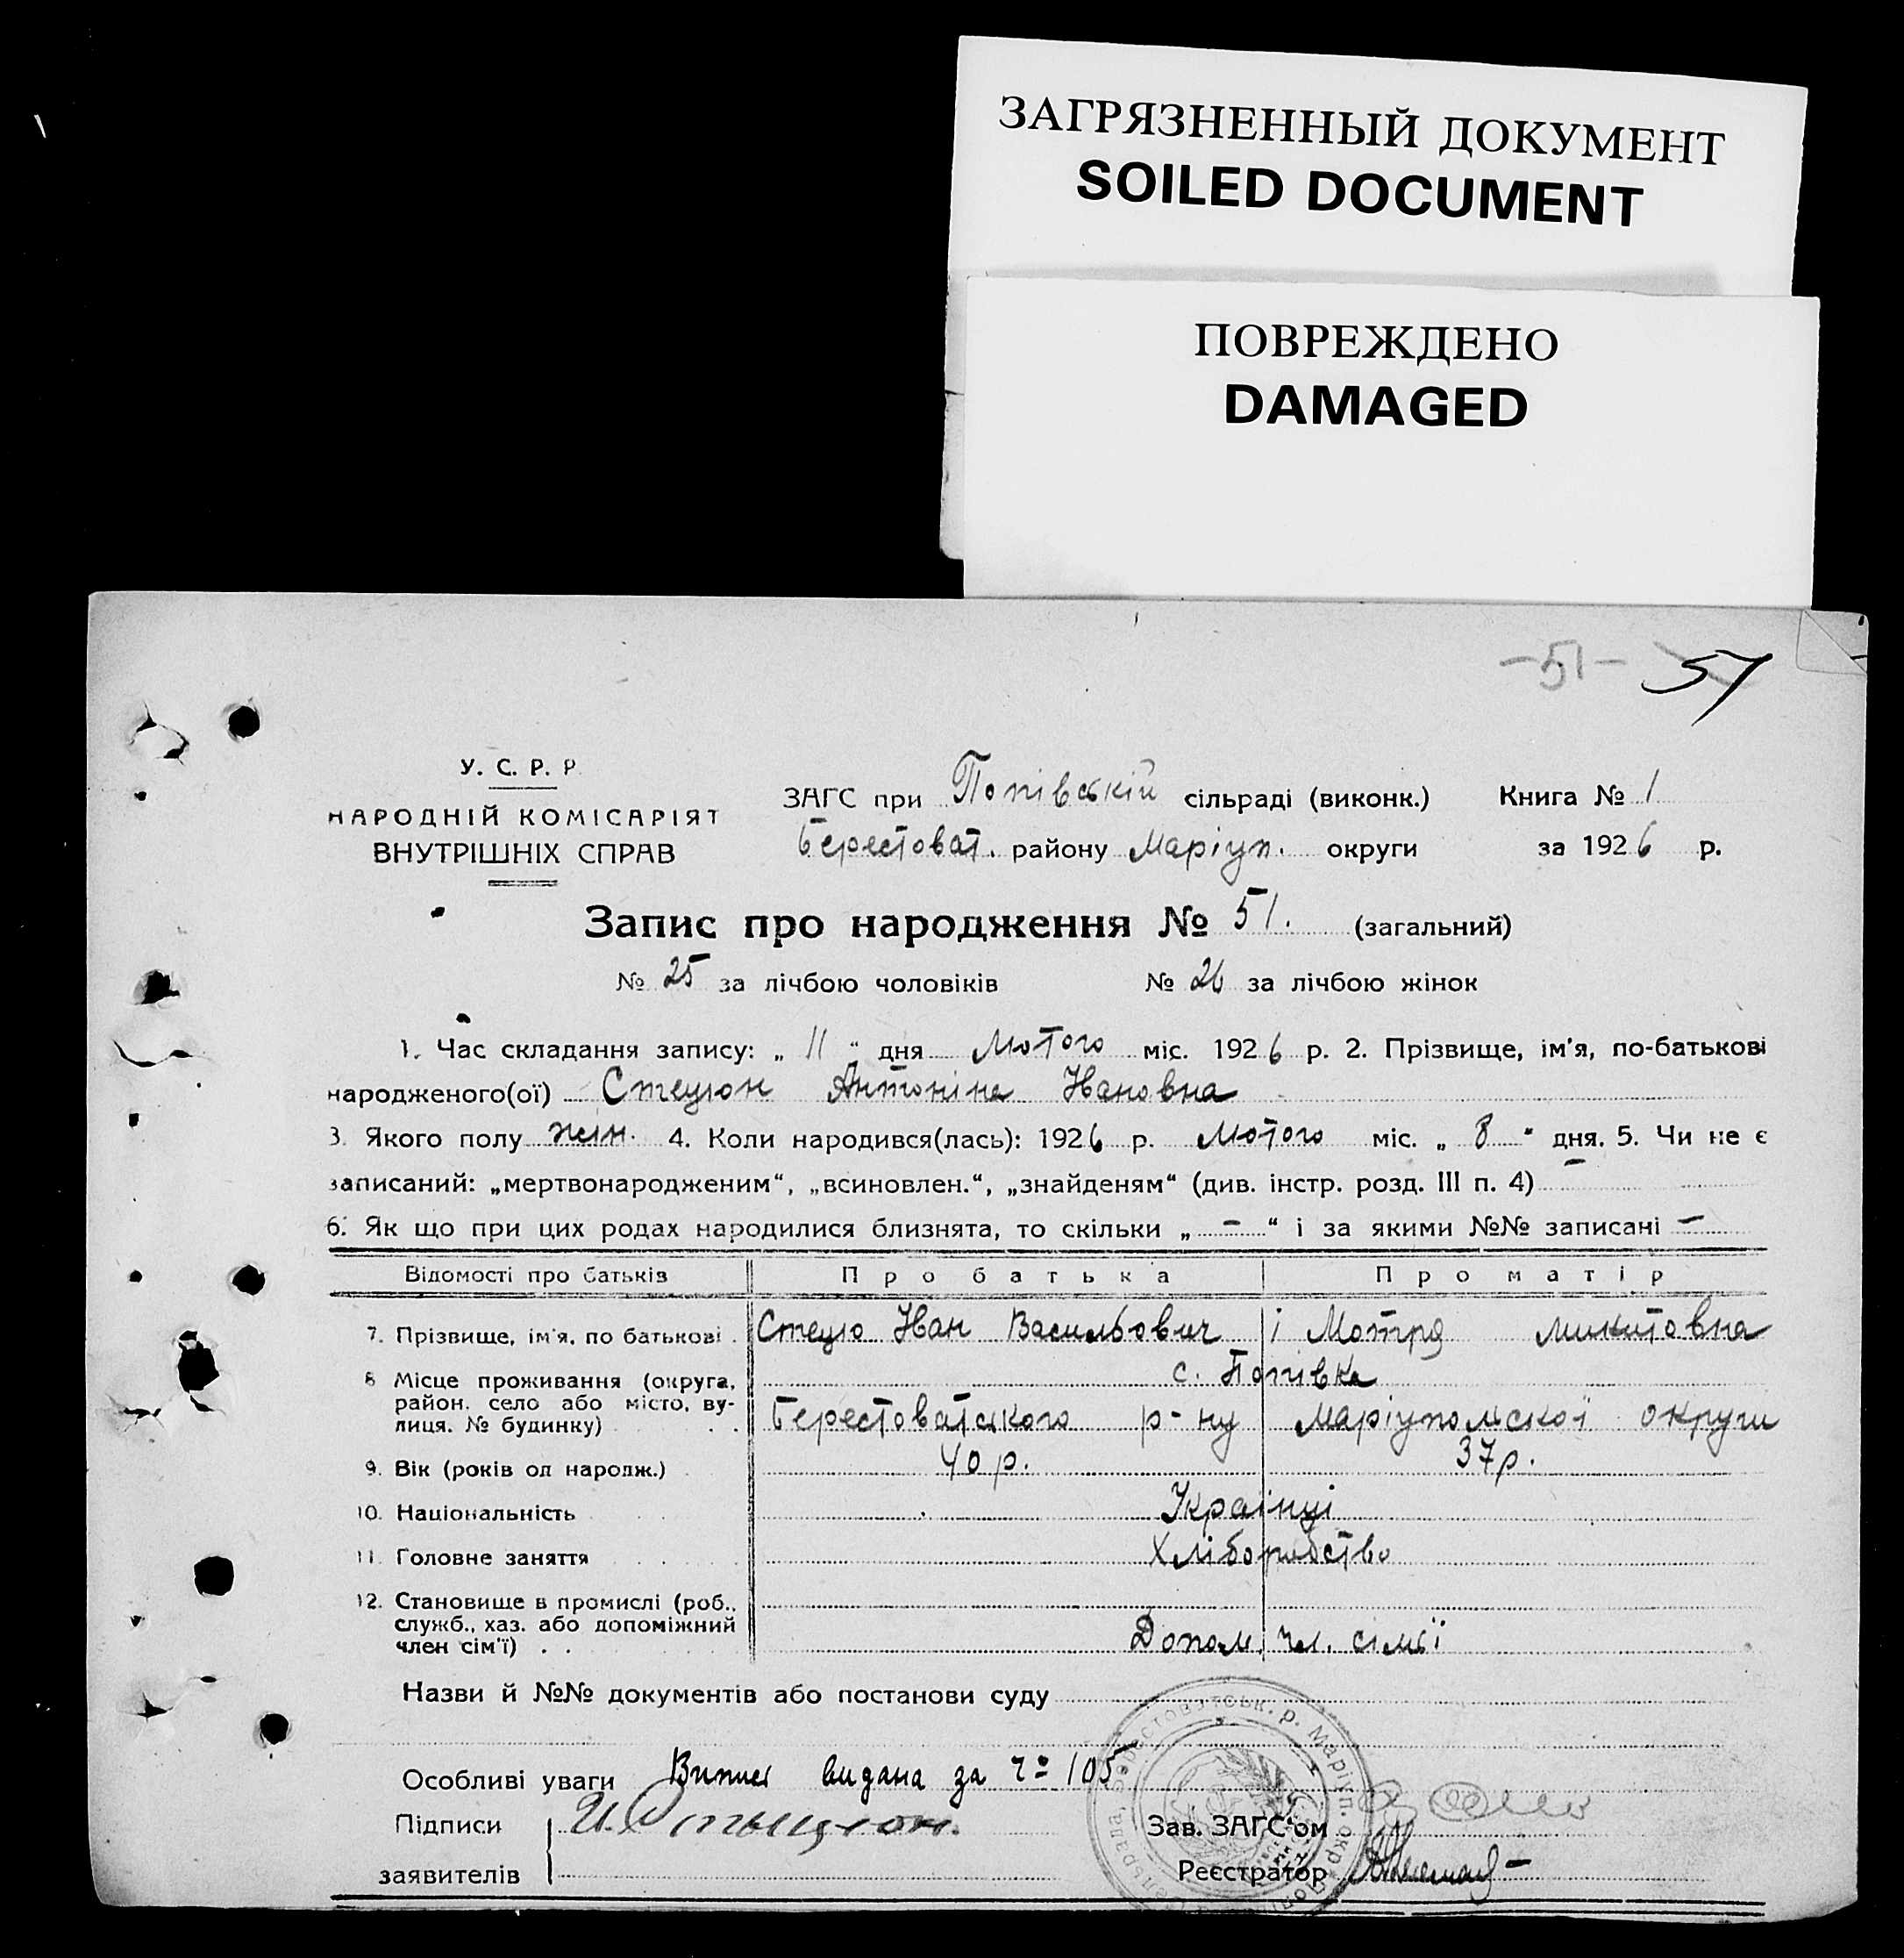 ЗАГРЯЗНЕННЫЙ ДОКУМЕНТ
SOILED DOCUMENT
ПОВРЕЖДЕНО
DAMAGED
-51- 51
У. С. Р. Р.
НАРОДНІЙ КОМІСАРІЯТ
ВНУТРІШНІХ СПРАВ
ЗАГС при Попівській сільраді (виконк.) Книга № 1
Берестоват. району Маріуп. округи за 1926 р.
Запис про народження № 51. (загальний)
№ 25 за лічбою чоловіків № 26 за лічбою жінок
1. Час складання запису: „ 11 " дня Лютого міс. 1926 р. 2. Прізвище, ім'я, по-батькові
народженого(ої) Стецюн Антоніна Івановна
3. Якого полу жін. 4. Коли народився(лась): 1926 р. Лютого міс. „ 8 " дня. 5. Чи не є
записаний: „мертвонародженим“, „всиновлен.“, „знайденям“ (див. інстр. розд. III п. 4) –
6. Як що при цих родах народилися близнята, то скільки „ – “ і за якими №№ записані –
Відомості про батьків Про батька Про матір
7. Прізвище, ім'я, по батькові Стецю Іван Васильович і Мотря Микитовна
8 Місце проживання (округа, район, село або місто, вулиця, № будинку) с. Попівка
Берестоватського р-ну Маріупольської округи
9. Вік (років од народж.) 40 р. 37 р.
10. Національність Українці
11. Головне заняття Хліборобство
12. Становище в промислі (роб.,
служб., хаз. або допоміжний
член сім'ї) . . Допом. чл. сімьї
Назви й №№ документів або постанови суду
Особливі уваги Випис видана за ч° 105
Підписи
Зав. ЗАГС'ом
заявителів
Реєстратор